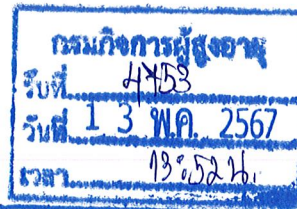 กรมกิจการผู้สูงอายุ
รับที่ 4753
วันที่ 13 พ.ค. 2567
เวลา 13:52 น.